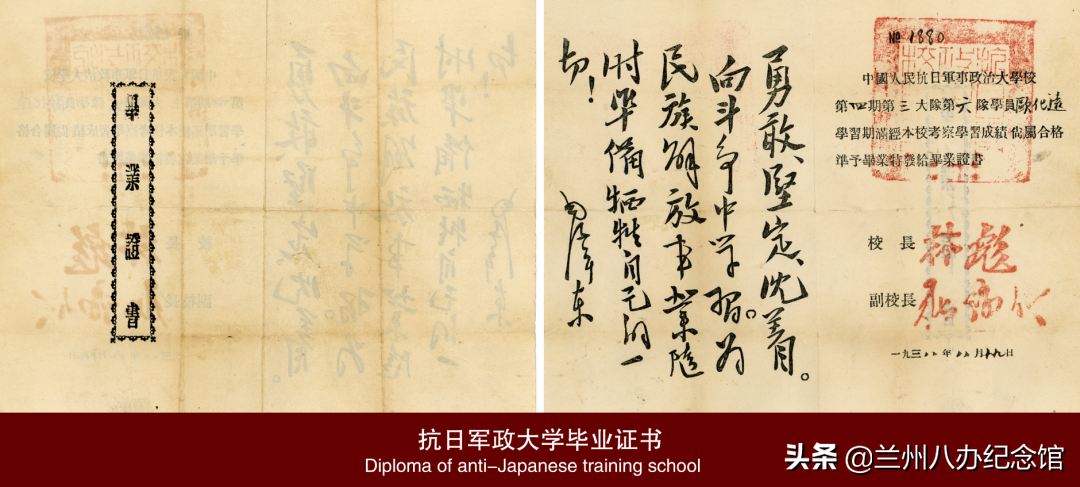 畢業證書
勇敢、堅定、沈着。
向斗争中学習。为
民族解放事業隨
时準備牺牲自己的一
切！
毛泽东
№ 1880
中國人民抗日軍事政治大學校
第四期第三大隊第六隊學員歐化遠
學習期滿經本校考察學習成績尚屬合格
準予畢業特發給畢業證書
校長 林彪
副校長
一九三八年 月 日
抗日军政大学毕业证书
Diploma of anti-Japanese training school
头条 @兰州八办纪念馆